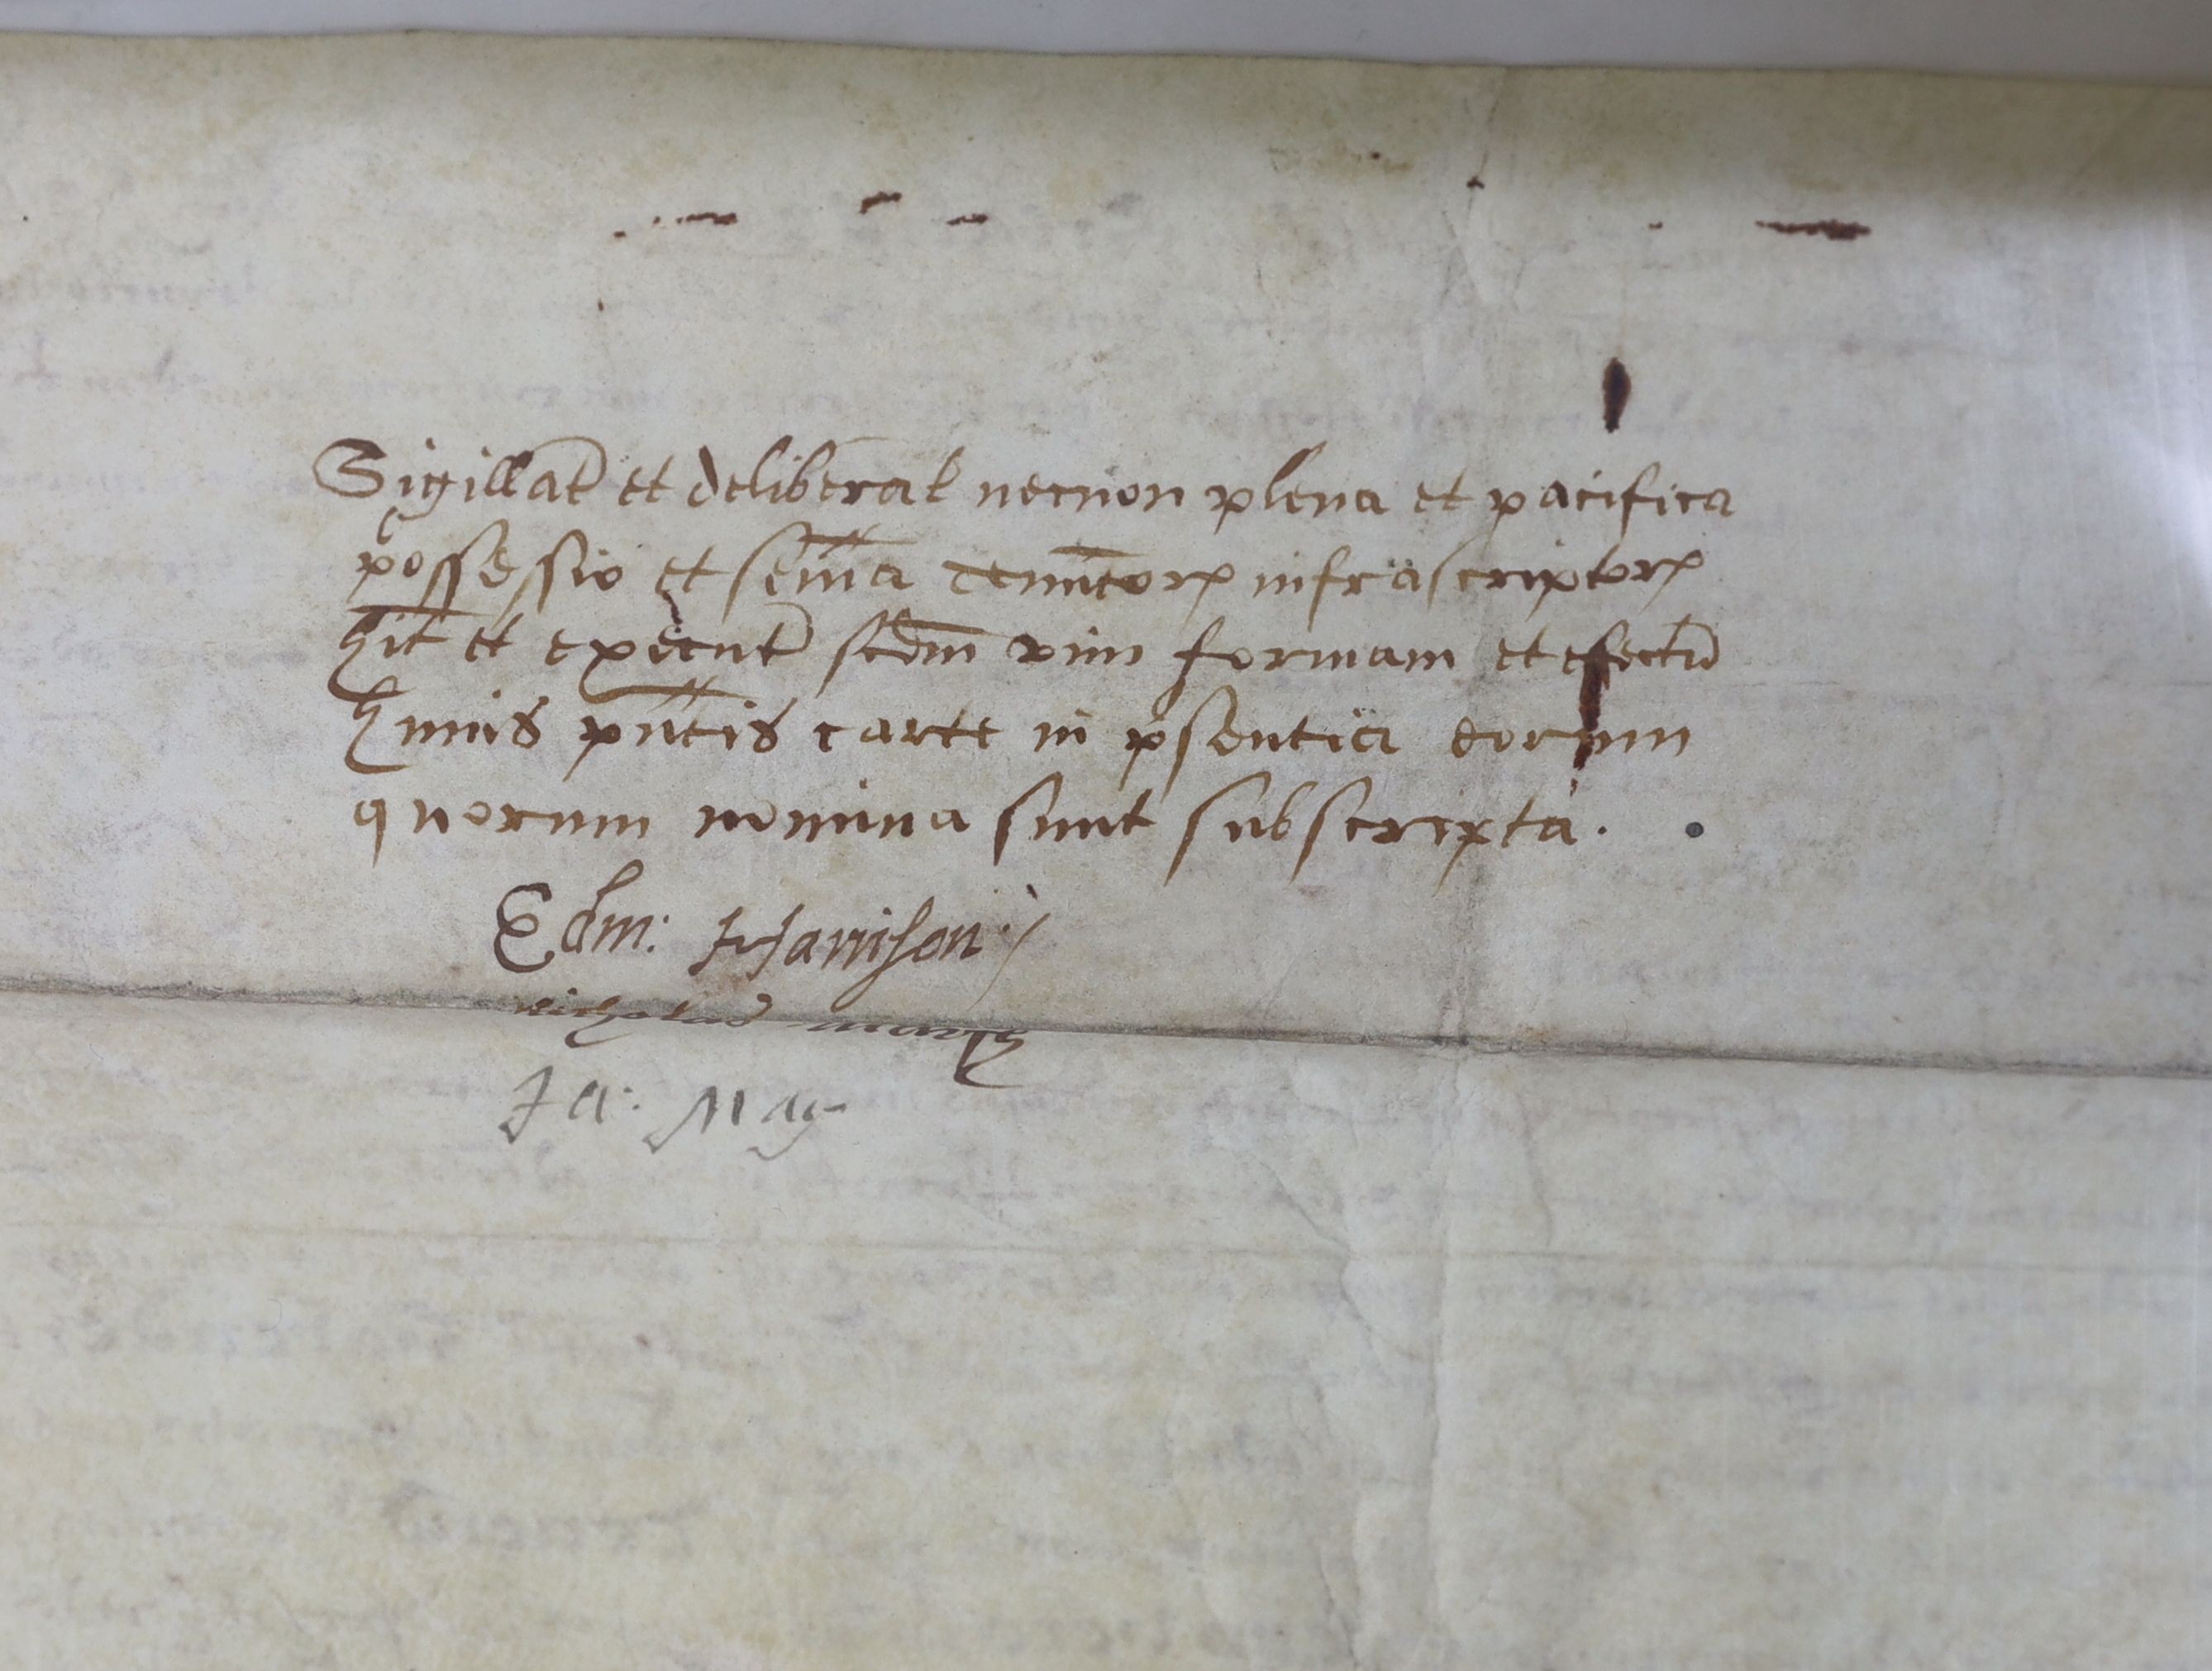 Sigillat et deliberat necnon plena et pacifica
possessio et seiīa ten̄tor̄ infrascriptor̄
hit et execut scdm vim formam et effectū
huius pn̄tis carte in psentia eorum
quorum nomina sunt subscripta.
Edm: Harrison
Nicholas
Ja: May